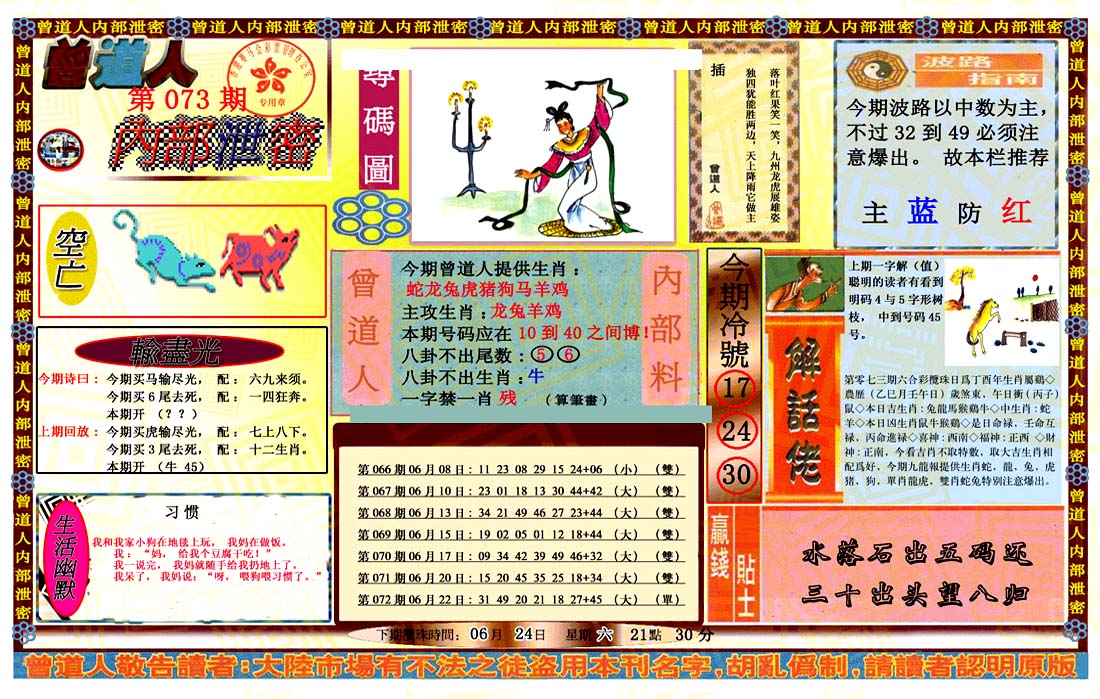 曾道人内部泄密 曾道人内部泄密 曾道人内部泄密 曾道人内部泄密 曾道人内部泄密 曾道人内部泄密 曾道人内部泄密
曾道人
第 073 期
内部泄密
专用章
尋碼圖
插
落叶红果笑一笑，九州龙虎展雄姿
独四犹能胜两边，天上降雨它做主
曾道人
波路
指南
今期波路以中数为主，
不过 32 到 49 必须注
意爆出。 故本栏推荐
主 蓝 防 红
空亡
輸盡光
今期诗曰： 今期买马输尽光， 配： 六九来须。
今期买 6 尾去死， 配： 一四狂奔。
本期开 （？？）
上期回放： 今期买虎输尽光， 配： 七上八下。
今期买 3 尾去死， 配： 十二生肖。
本期开 （牛 45）
曾道人
内部料
今期曾道人提供生肖：
蛇龙兔虎猪狗马羊鸡
主攻生肖：龙兔羊鸡
本期号码应在 10 到 40 之间博!
八卦不出尾数：⑤⑥
八卦不出生肖：牛
一字禁一肖 残 （算筆畫）
今期冷號
17
24
30
上期一字解（值）
聪明的读者有看到
明码 4 与 5 字形树
枝， 中到号码 45
号。
解話佬
第零七三期六合彩攪珠日爲丁酉年生肖屬鷄◇
農歷（乙巳月壬午日）歲煞東，午日衝（丙子）
鼠◇本日吉生肖：兔龍馬猴鷄牛◇中生肖：蛇
羊◇本日凶生肖鼠牛猴鷄◇是日命禄，壬命互
禄，丙命進禄◇喜神：西南◇福神：正西 ◇財
神：正南，今看吉肖不取特數，取大吉生肖相
配爲好，今期九龍報提供生肖蛇，龍，兔，虎
猪，狗，單肖龍虎，雙肖蛇兔特别注意爆出。
生活幽默
习 惯
我和我家小狗在地毯上玩， 我妈在做饭。
我：“妈， 给我个豆腐干吃！”
我一说完， 我妈就随手给我扔地上了。
我呆了， 我妈说：“呀， 喂狗喂习惯了。”
第 066 期 06 月 08 日：11 23 08 29 15 24+06 （小） （雙）
第 067 期 06 月 10 日：23 01 18 13 30 44+42 （大） （雙）
第 068 期 06 月 13 日：34 21 49 46 27 23+44 （大） （雙）
第 069 期 06 月 15 日：19 02 05 01 12 18+44 （大） （雙）
第 070 期 06 月 17 日：09 34 42 39 49 46+32 （大） （雙）
第 071 期 06 月 20 日：15 20 45 35 25 18+34 （大） （雙）
第 072 期 06 月 22 日：31 49 20 21 18 27+45 （大） （單）
贏錢
貼士
水落石出五码还
三十出头望八归
下期攪珠時間： 06月 24日 星期 六 21點 30 分
曾道人敬告讀者：大陸市場有不法之徒盗用本刊名字，胡亂僞制，請讀者認明原版